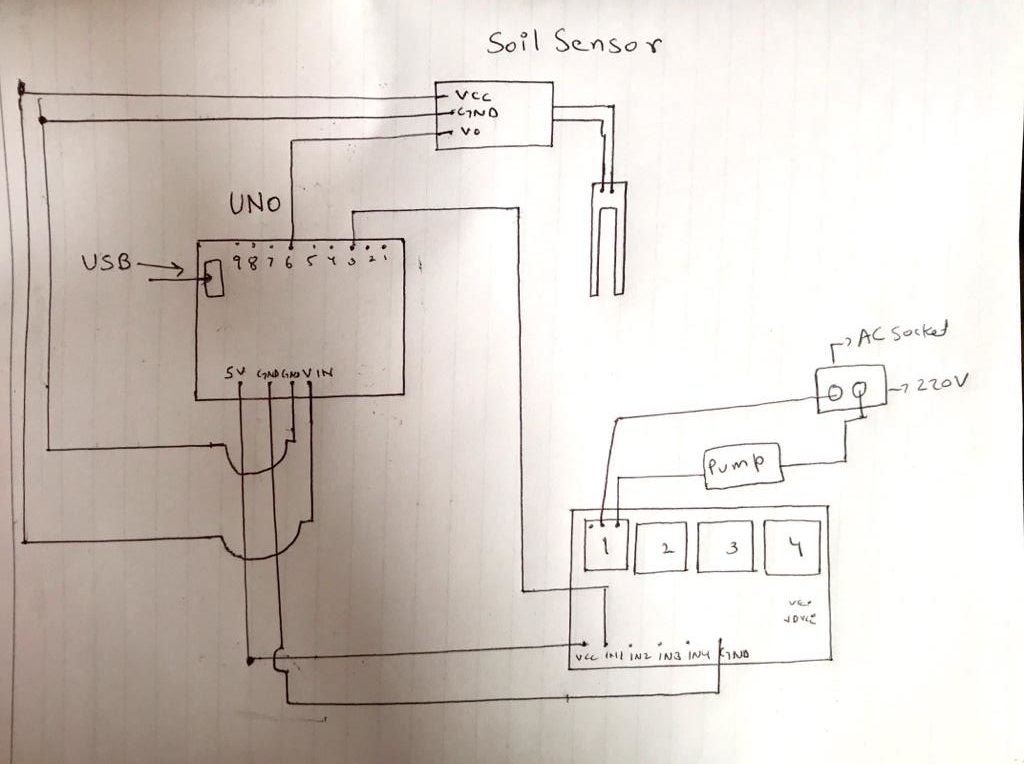 Soil Sensor
VCC
GND
VO
UNO
USB
9 8 7 6 5 4 3 2 1
5V GND GND VIN
AC Socket
220V
Pump
1 2 3 4
VCC IN1 IN2 IN3 IN4 GND